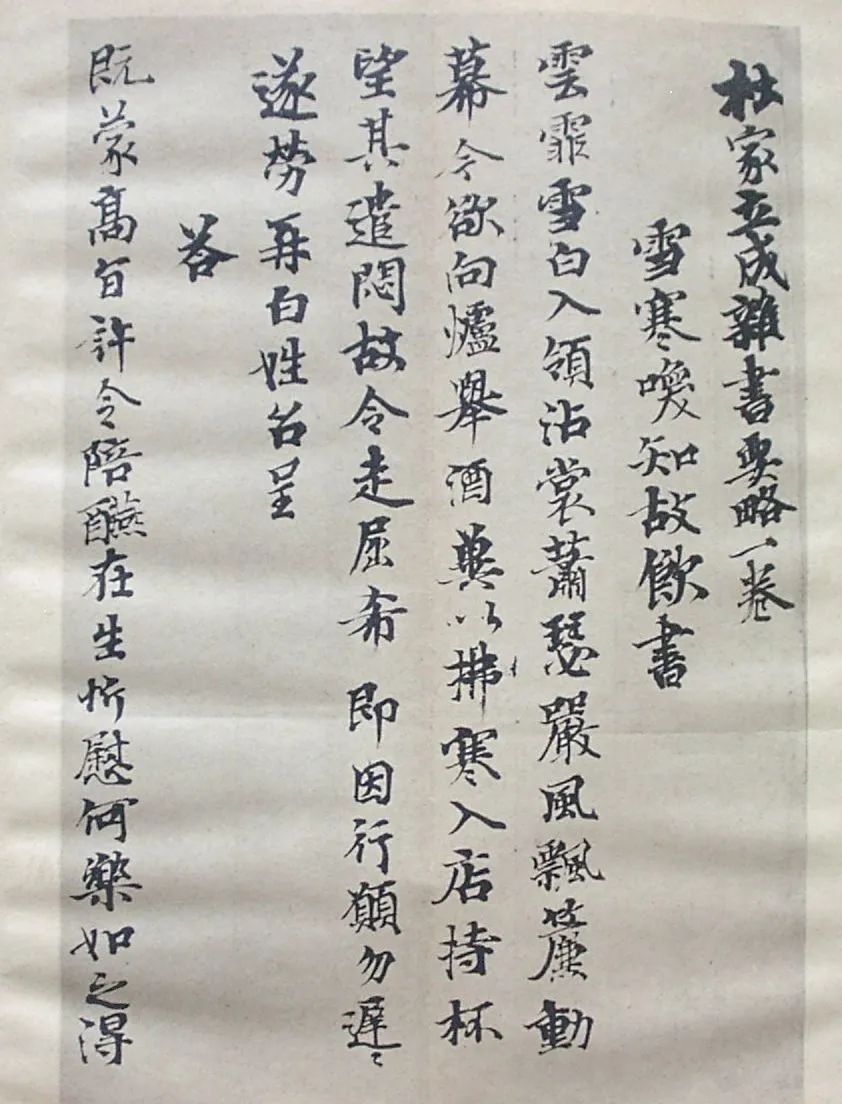 杜家立成雜書要略一卷
雪寒喚知故飲書
雲霏雪白入領沾裳蕭瑟嚴風飄簾動
幕今欲向爐舉酒冀以拂寒入店持杯
望其遣悶故令走屈希即因行願勿遲々
遂勞再白姓名呈
荅
既蒙高旨許令陪讌在生忻慰何樂如之得